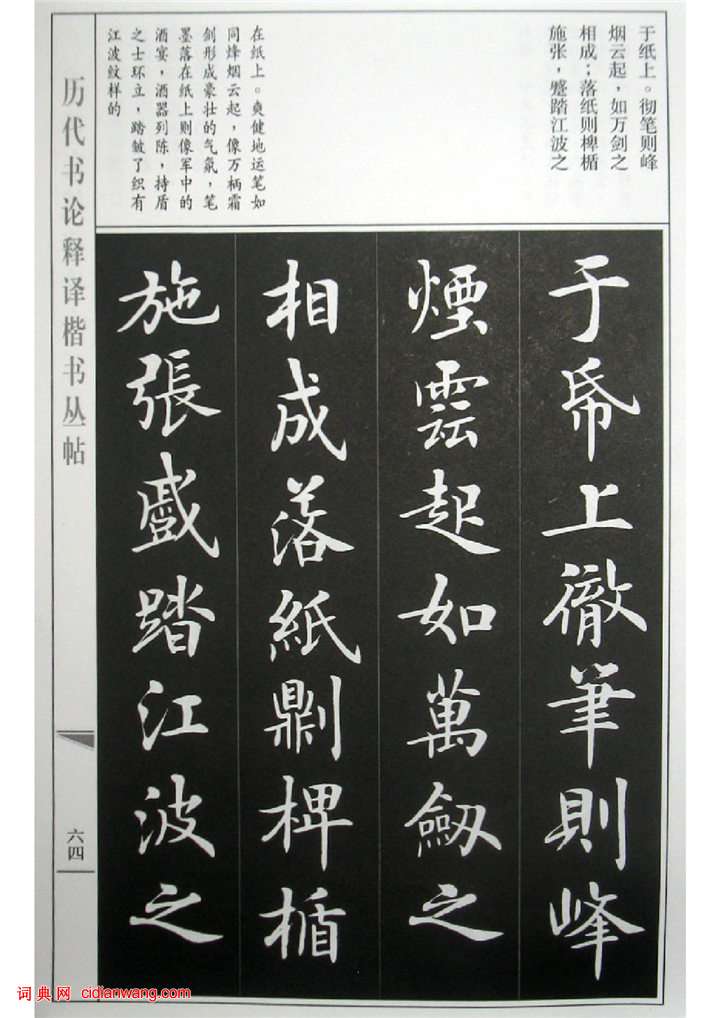 于纸上。彻笔则峰
烟云起，如万剑之
相成；落纸则椑楯
施张，蹙踏江波之
在纸上。爽健地运笔如
同烽烟云起，像万柄霜
剑形成豪壮的气氛，笔
墨落在纸上则像军中的
酒宴，酒器列陈，持盾
之士环立，踏皱了织有
江波纹样的
历代书论释译楷书丛帖
于帋上徹筆則峰
煙雲起如萬劒之
相成落紙𠟭椑楯
施張蹙踏江波之
六四
词典网 cidianwang.com